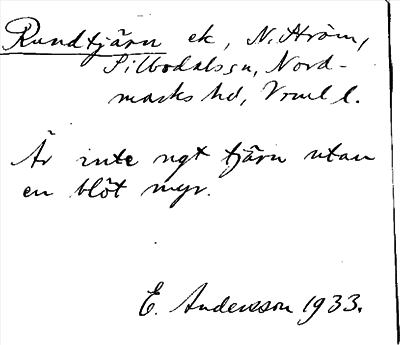 Rundtjärn ek, N. Ström,
Silbodals sn, Nord-
marks hd, Vrml l.
Är inte ngt tjärn utan
en blöt myr.
E. Andersson 1933.